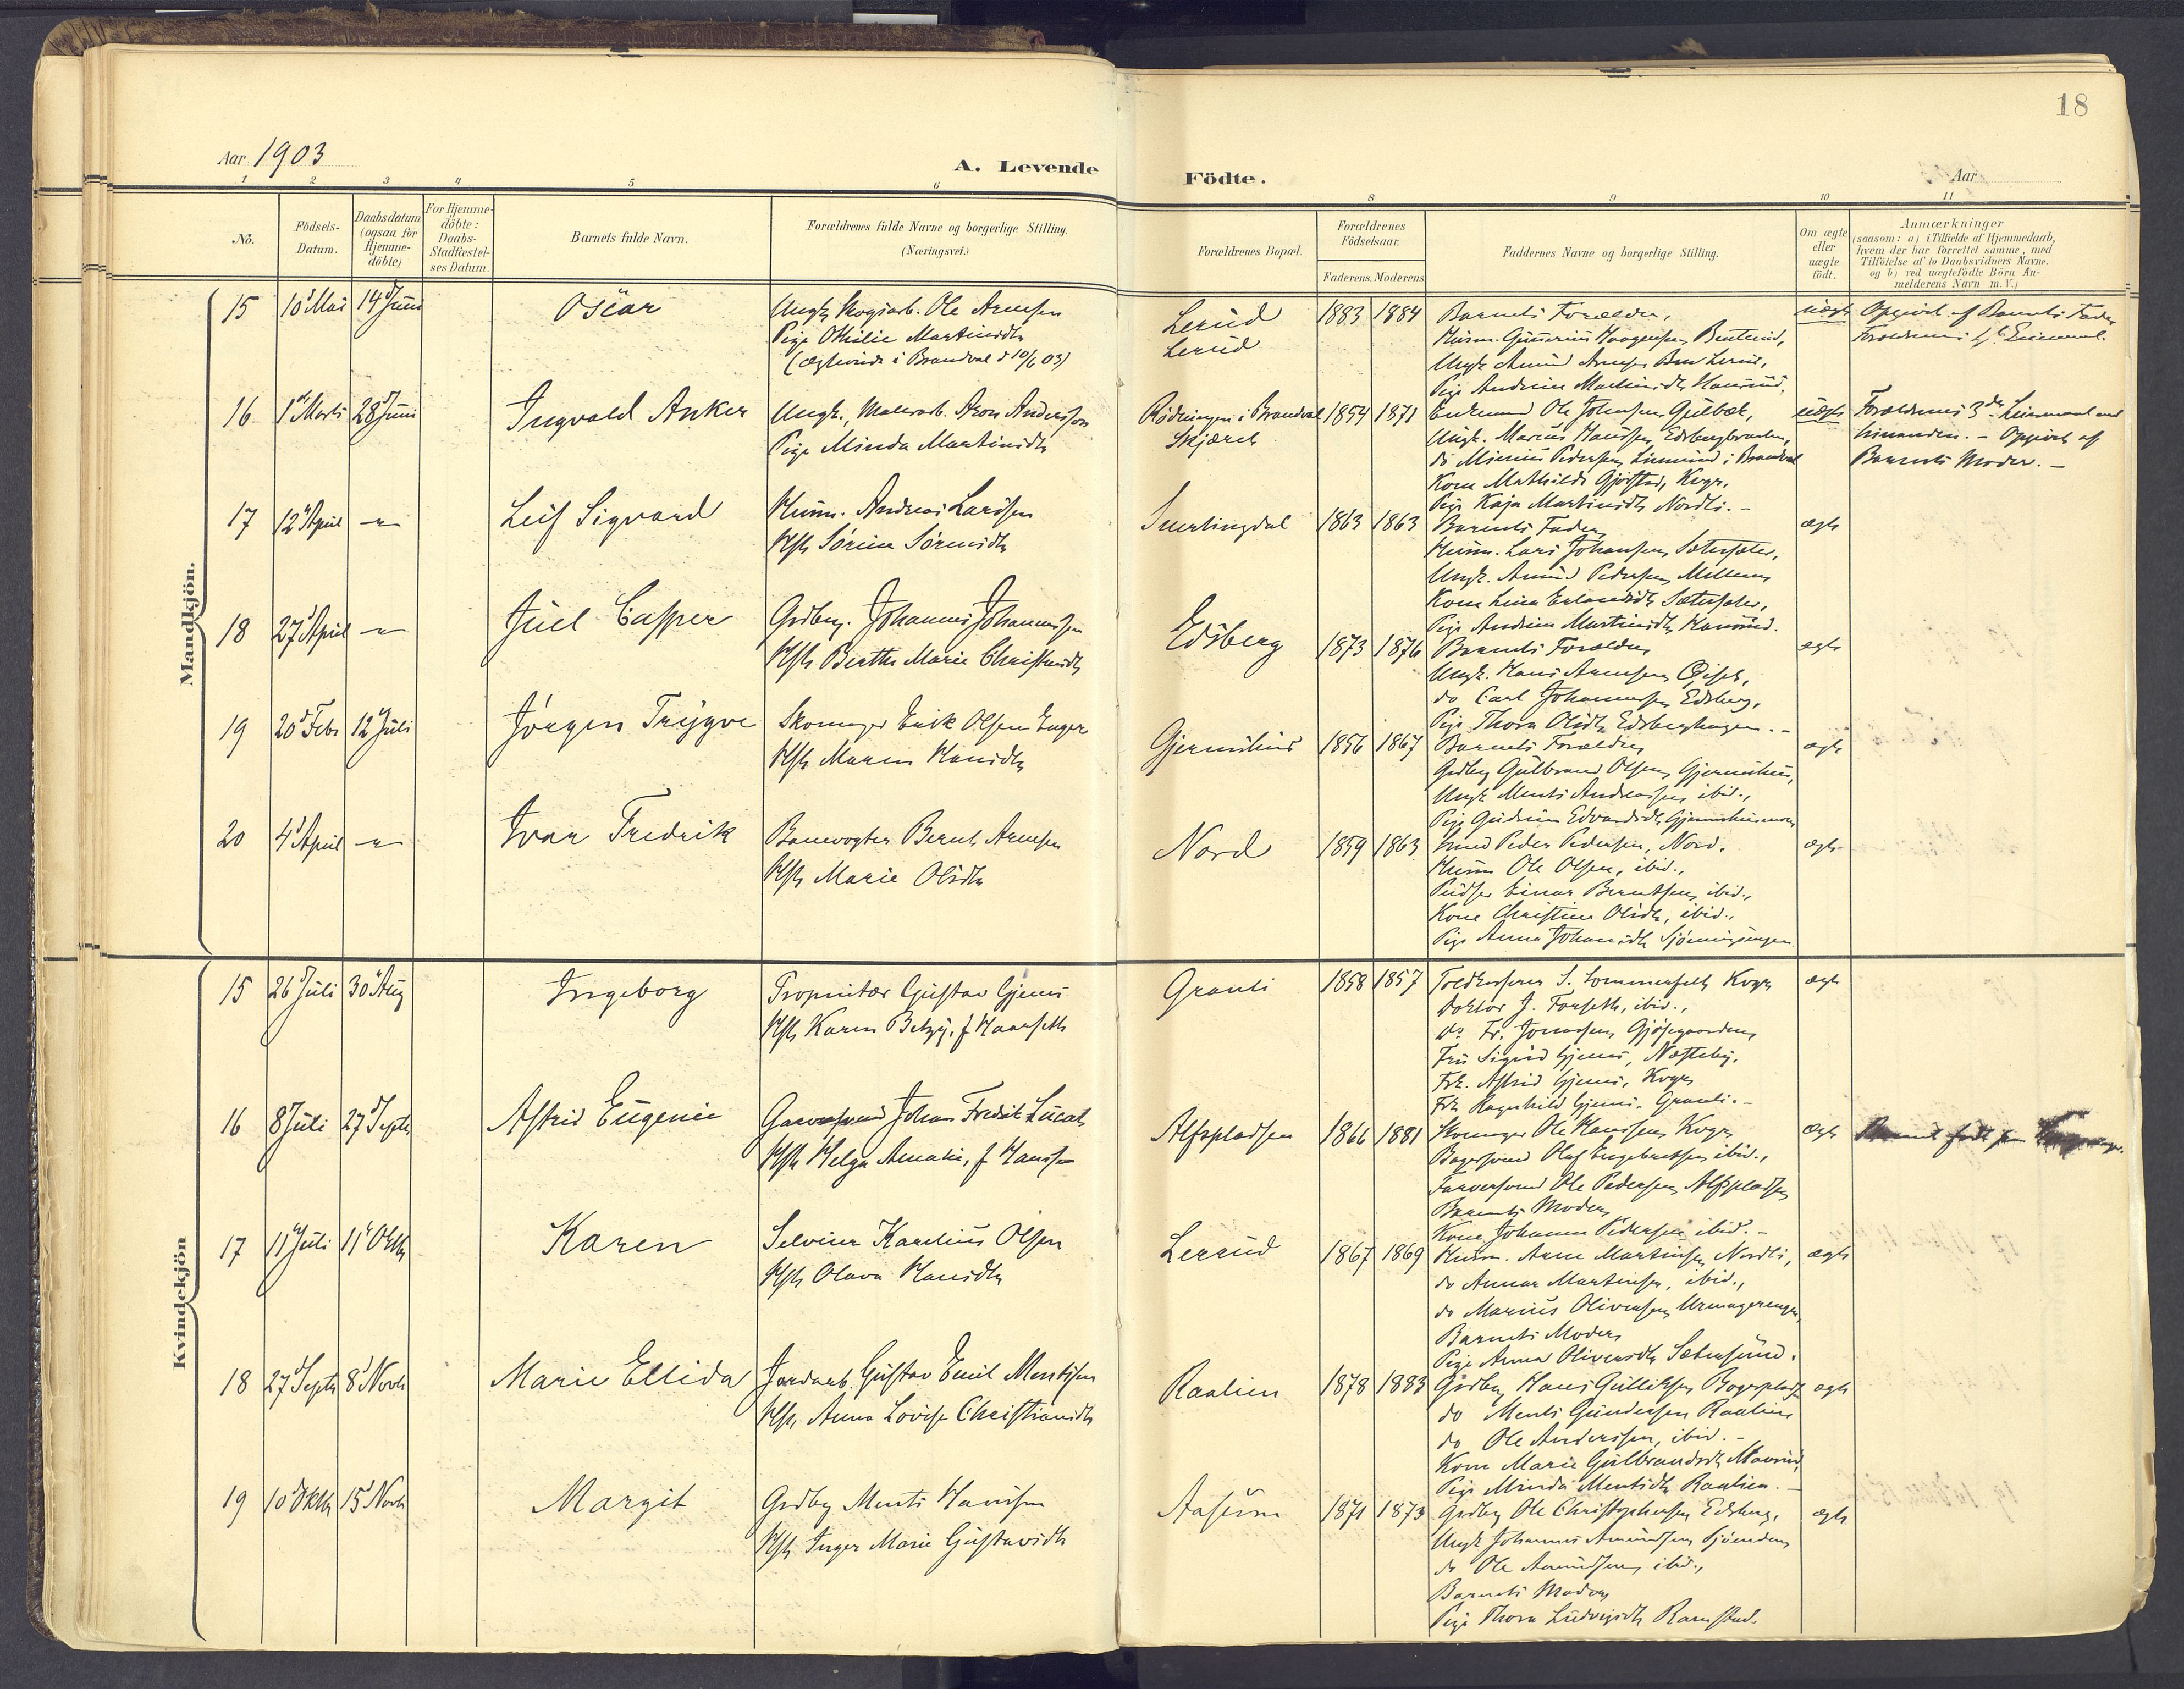 18
Aar 1903
A. Levende
Födte.
Aar
1 2 3 4 5 6
8 9 10 11
No.
Födsels-Datum.
Daabsdatum (ogsaa for Hjemme-döbte)
For Hjemme-döbte: Daabs-Stadfæstel-ses Datum.
Barnets fulde Navn.
Forældrenes fulde Navne og borgerlige Stilling. (Næringsvei.)
Forældrenes Bopæl.
Forældrenes Födselsaar.
Faderens. Moderens
Faddernes Navne og borgerlige Stilling.
Om ægte eller uægte födt.
Anmærkninger (saasom: a) i Tilfælde af Hjemmedaab, hvem der har forrettet samme, med Tilföielse af to Daabsvidners Navne. og b) ved uægtefödte Börn An-melderens Navn m.V.)
Mandkjön.
15 10 Mai 14 Juni
Oscar
Ungk. Skogsarb. Ole Arnesen
Pige Othilie Martinsdtr
(Ægteviede i Brandval d 10/6 03)
Lerud
Lerud
1883 1884
Barnets Forældre,
uægte
Opgivet af Barnets Fader
16 1 Marts 28 Juni
Ingvald Anker
Ungk., Malerarb. Aron Andersson
Pige Minda Martinsdtr
i Brandval
Skjæret
1854 1871
Ungk. Marius Hanssen
Kone Mathilde Gjøsta, Kvgr.
Pige Kaja Martinsdtr Nordli. -
uægte
Forældrenes 3de Leiermaal med
hinanden. - Opgivet af
Barnets Moder. -
17 12 April -"-
Leif Sigvard
Husm. Andreas Larssen
Hst. Sørine Sørensdtr
Smertingdal
1863 1863
Barnets Fader
Husm. Lars Johansen
Ungk. Amund Pedersen
Pige Andrine Martinsdtr
ægte
18 27 April -"-
Juel Casper
Grdbrg. Johannes Johannessen
Hst. Berthe Marie Christensdtr
Edsberg
1873 1876
Barnets Forældre
Ungk. Hans Arnesen
do Carl Johannessen Edsberg,
Pige Thora Olsdtr Edsberghagen. -
ægte
19 20 Febr 12 Juli
Jørgen Trygve
Skomager Erik Olsen Enger
Hst. Maren Hansdtr
Gjermshus
1856 1867
Barnets Forældre
Grdbrg Gulbrand Olsen, Gjermshus,
Ungk Ments Andreassen, ibid.,
ægte
20 4 April -"-
Ivar Fredrik
Banevogter Bernt Arnesen
Hst. Marie Olsdtr
Nord
1859 1863
Smed Peder Pedersen, Nord.
Husm Ole Olsen, ibid.,
Pudser Einar Berntsen, ibid.,
Kone Christine Olsdtr, ibid.,
Pige Anna Johansdtr
ægte
Kvindekjön
15 26 Juli 30 Aug
Ingeborg
Proprietær Gustav Gjems
Hst. Karen Betzy, f Haarseth
Granli
1858 1857
Toldkasserer S. Sommerfelt, Kvgr
Doktor J. Forseth, ibid.,
do Fr. Jonassen, Gjøsegaarden,
Fru Sigrid Gjems, Næsteby.
Frk. Astrid Gjems, Kvgr
Frk Ragnhild Gjems. Granli. -
ægte
16 8 Juli 27 Septr
Astrid Eugenie
Garversvend Johan Fredrik Lucat
Hst. Helga Amalie, f Hanssen
Alfspladsen
1866 1881
Skomager Ole Hanssen, Kvgr,
Bagersvend Olaf Engebretsen ibid.,
Farversvend Ole Pedersen Alfspladsen
Barnets Moder,
Kone Johanne Pedersen ibid. -
Ægte
17 11 Juli 11 Oktbr
Karen
Selveier Karelius Olsen
Hst. Olava Hansdtr
Lerud
1867 1869
Husm. Arne Martinsen Nordli,
do Annar Martinsen, ibid.,
do Marius Oliversen
Barnets Moder,
Pige Anna Oliversdtr
ægte
18 27 Septr 8 Novbr
Marie Ellida
Jordarb. Gustav Emil Mentzsen
Hst. Anna Lovise Christiansdtr
Raalien
1878 1883
Grdbrg Hans Gulliksen
do Ments Gundersen Raalien
do Ole Andersen, ibid. -
Kone Marie Gulbrandsdtr
Pige Minda Mentsdtr Raalien. -
ægte
19 10 Oktbr 15 Novbr
Margit
Grdbrg Ments Hanssen
Hst. Inger Marie Gustavsdtr
Aasum
1871 1873
Grdbrg Ole Christophersen Edsberg,
Ungk Johannes Amundsen
do Ole Amundsen, ibid.,
Barnets Moder,
Pige Thora Ludvigsdtr
ægte